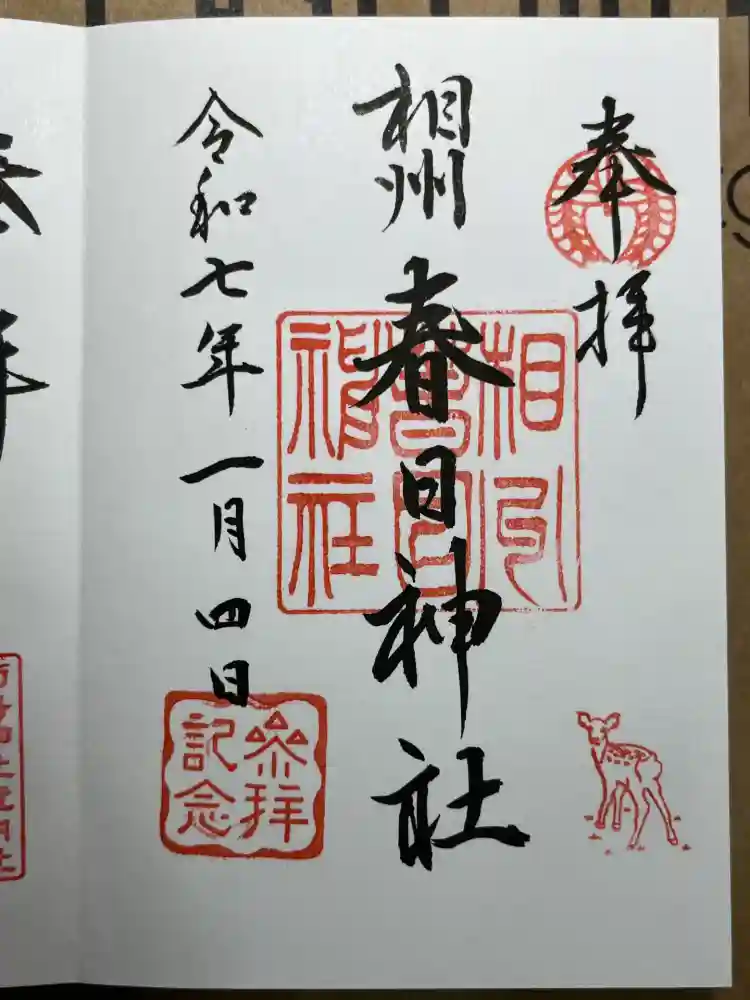 奉拝
相州 春日神社
相州春日神社
令和七年一月四日
参拝記念